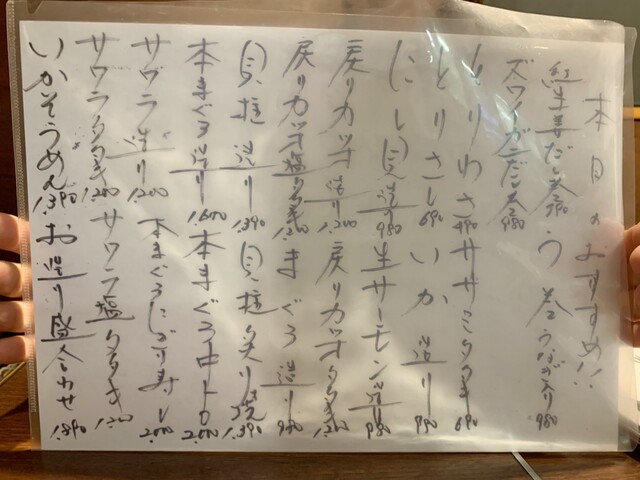 本日のおすすめ!!
紅生姜だし巻 980 う巻 うなぎ入り 980
ズワイガニだし巻 980
とりわさ 690 ササミタタキ 690
とりさし 690 いか造り 980
にし貝造り 980 生サーモン造り 980
戻りカツオ造り 1,200 戻りカツオタタキ 1,200
戻りカツオ塩タタキ 1,200 まぐろ造り 980
貝柱造り 1,390 貝柱炙り 1,390
本まぐろ造り 1,600 本まぐろ中トロ 2,000
サワラ造り 1,200 本まぐろにぎります 2,000
サワラタタキ 1,200 サワラ塩タタキ 1,200
いかそうめん 1,390 お造り盛合わせ 1,890